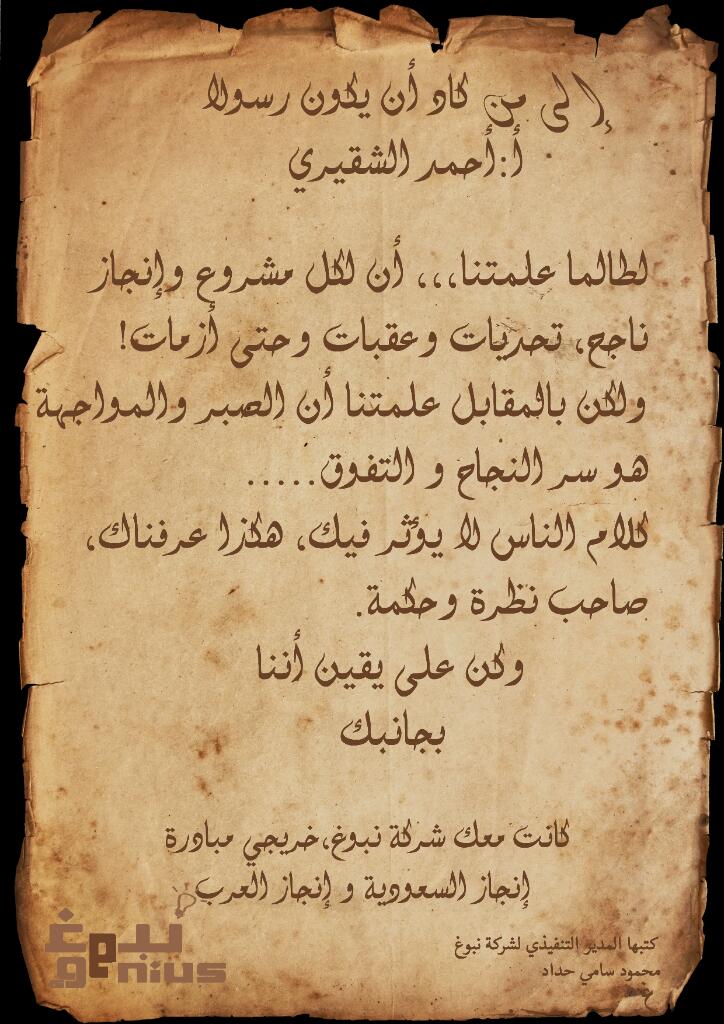 إلى من كاد أن يكون رسولا
أ:أحمد الشقيري
لطالما علمتنا،،، أن لكل مشروع وإنجاز
ناجح، تحديات وعقبات وحتى أزمات!
ولكن بالمقابل علمتنا أن الصبر والمواجهة
هو سر النجاح و التفوق.....
كلام الناس لا يؤثر فيك، هكذا عرفناك،
صاحب نظرة وحكمة.
وكن على يقين أننا
بجانبك
كانت معك شركة نبوغ،خريجي مبادرة
إنجاز السعودية و إنجاز العرب
كتبها المدير التنفيذي لشركة نبوغ
محمود سامي حداد
نبوغ
genius